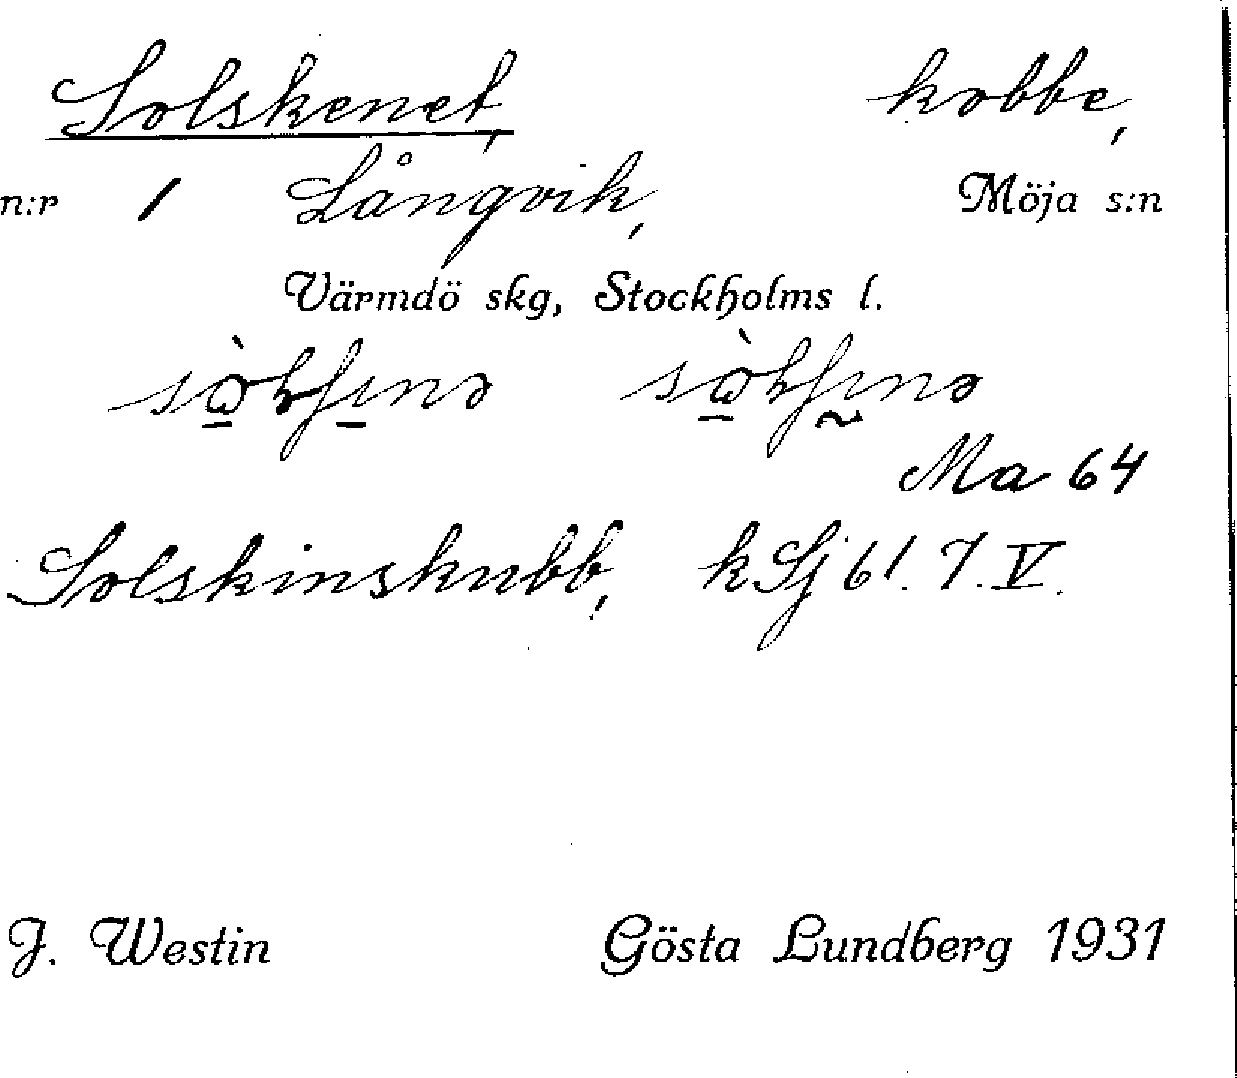 Solskenet, kobbe,
n:r 1 Långvik, Möja s:n
Värmdö skg, Stockholms l.
Ma 64
Solskinskubb, kSj 61. 7. V.
J. Westin Gösta Lundberg 1931